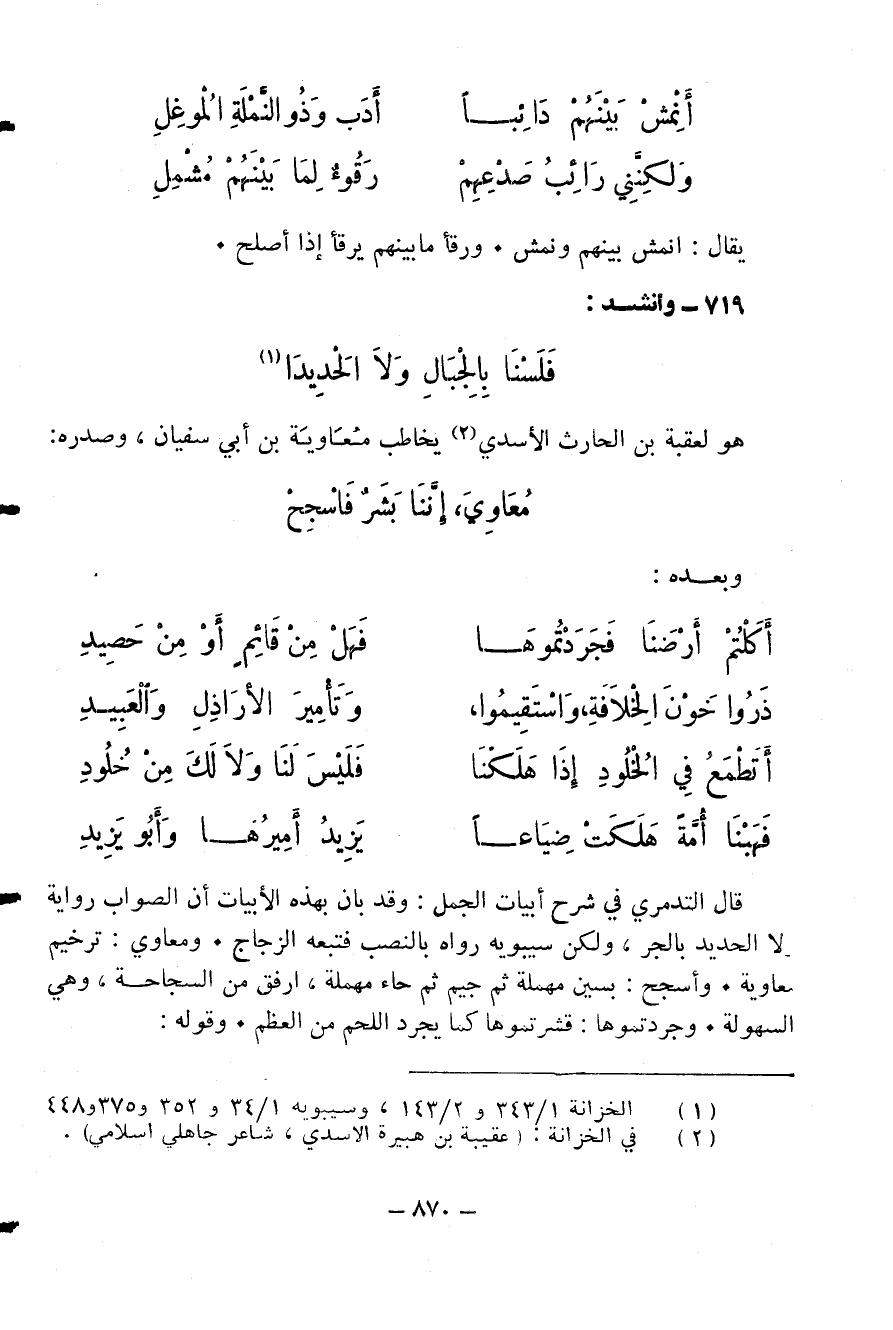 أَنْمُشْ بَيْنَهُمْ دَائِبــــاً أَدَب وَذُو النَّمْلَةِ الْمُوغِلِ
وَلَكِنَّنِي رَائِبُ صَدْعِهِمْ رَقُوءٌ لِمَا بَيْنَهُمْ مُشْمِلِ
يقال : انمش بينهم ونمش ٠ ورقأ مابينهم يرقأ إذا أصلح ٠
٧١٩ ـ وانشـــد :
فَلَسْنَا بِالْجِبَالِ وَلاَ الْحَدِيدَا (١)
هو لعقبة بن الحارث الأسدي (٢) يخاطب مُعَاوية بن أبي سفيان ، وصدره:
مُعَاوِيَ، إِنَّنَا بَشَرٌ فَاسْجِحْ
وبعـــده :
أَكَلْتُمْ أَرْضَنَا فَجَرَدْتُمُوهَـــا فَهَلْ مِنْ قَائِمٍ أَوْ مِنْ حَصِيدِ
ذَرُوا خَوْنَ الْخِلَافَةِ، وَاسْتَقِيمُوا، وَتَأْمِيرَ الأرَاذِلِ وَالْعَبِيــدِ
أَتَطْمَعُ فِي الْخُلُودِ إِذَا هَلَكْنَا فَلَيْسَ لَنَا وَلاَ لَكَ مِنْ خُلُودِ
فَهَبْنَا أُمَّةً هَلَكَتْ ضِيَاعــاً يَزِيدُ أَمِيرُهَــا وَأَبُو يَزِيدِ
قال التدمري في شرح أبيات الجمل : وقد بان بهذه الأبيات أن الصواب رواية
لا الحديد بالجر ، ولكن سيبويه رواه بالنصب فتبعه الزجاج ٠ ومعاوي : ترخيم
معاوية ٠ وأسجح : بسين مهملة ثم جيم ثم حاء مهملة ، ارفق من السجاحــة ، وهي
السهولة ٠ وجردتموها : قشرتموها كما يجرد اللحم من العظم ٠ وقوله :
(١) الخزانة ٣٤٣/١ و ١٤٣/٢ ، وسيبويه ٣٤/١ و ٣٥٢ و٣٧٥و٤٤٨
(٢) في الخزانة : ( عقيبة بن هبيرة الاسدي ، شاعر جاهلي اسلامي) .
– ٨٧٠ –